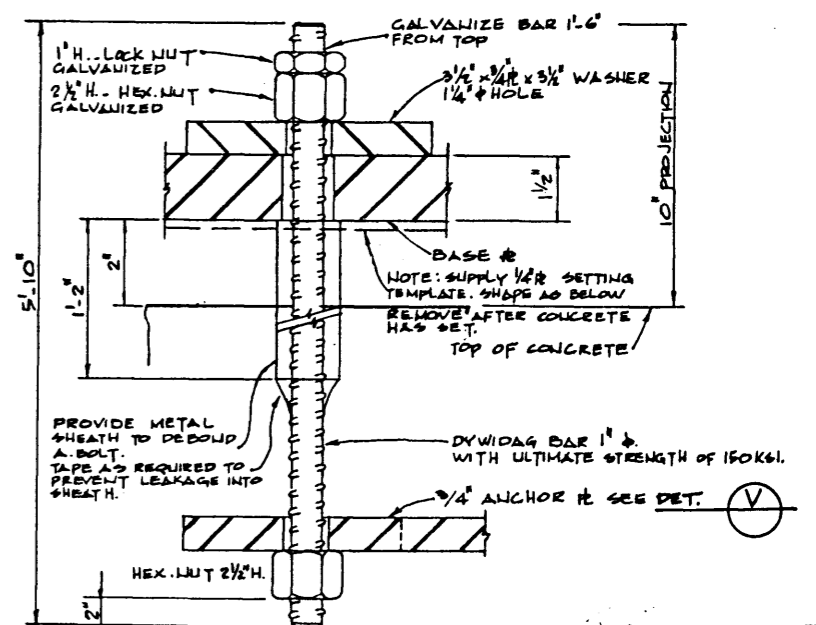 GALVANIZE BAR 1'-6"
FROM TOP
1" H.. LOCK NUT
GALVANIZED
2½" H.. HEX. NUT
GALVANIZED
3½" x ¾ ⅊ x 3½" WASHER
1¼" ϕ HOLE
10" PROJECTION
1½"
5'-10"
1'-2"
2"
BASE ⅊
NOTE: SUPPLY ¼" ⅊ SETTING
TEMPLATE. SHAPE AS BELOW
REMOVE AFTER CONCRETE
HAS SET.
TOP OF CONCRETE
PROVIDE METAL
SHEATH TO DEBOND
A. BOLT.
TAPE AS REQUIRED TO
PREVENT LEAKAGE INTO
SHEATH.
DYWIDAG BAR 1" ϕ.
WITH ULTIMATE STRENGTH OF 150 KSI.
¾" ANCHOR ⅊ SEE DET.
V
HEX. NUT 2½" H.
2"